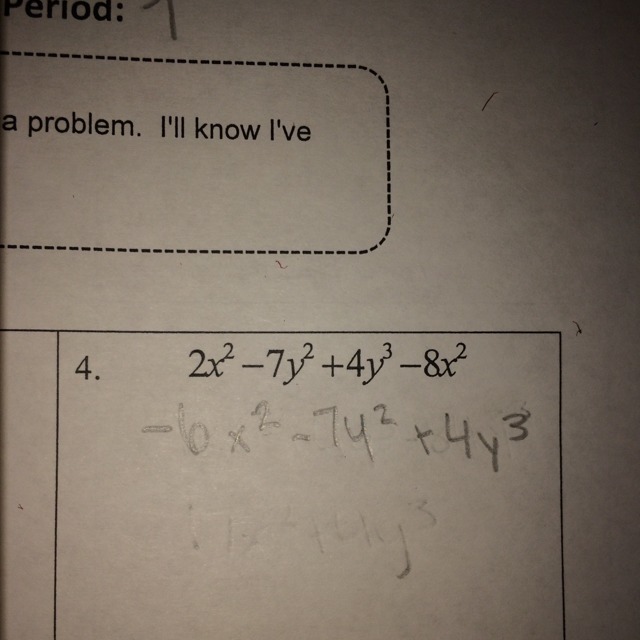 Period: 1
a problem. I'll know I've
4. 2x² –7y² +4y³ –8x²
-6x² -7y² +4y³